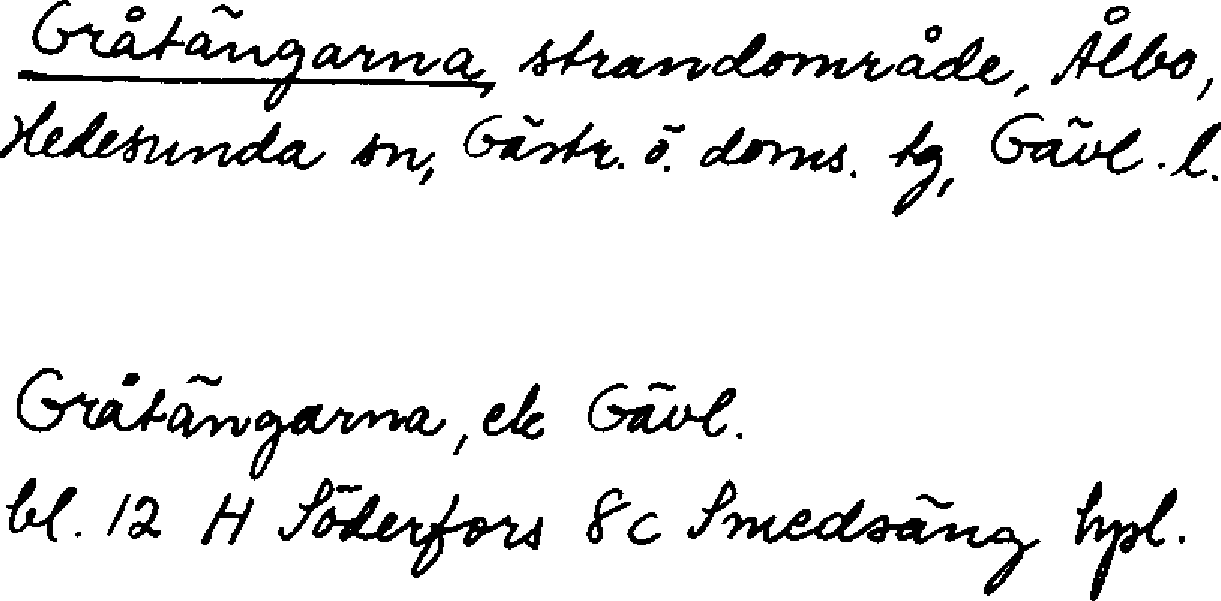 Gråtängarna, strandområde, Ålbo,
Hedesunda sn, Gästr. ö. doms. tg, Gävl. l.
Gråtängarna, ek Gävl.
bl. 12 H Söderfors 8c Smedsäng hpl.